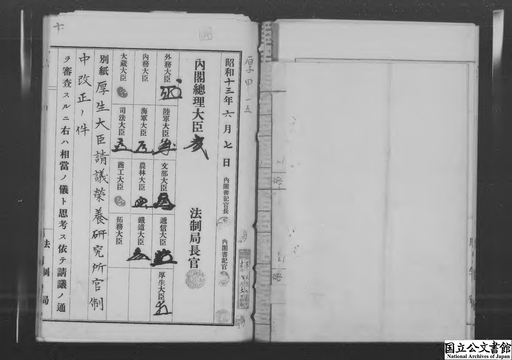 厚甲一五
昭和十三年六月七日
内閣書記官長
内閣書記官
内閣總理大臣
法制局長官
外務大臣
陸軍大臣
文部大臣
遞信大臣
厚生大臣
内務大臣
海軍大臣
農林大臣
鐵道大臣
大蔵大臣
司法大臣
商工大臣
拓務大臣
別紙厚生大臣請議榮養研究所官制
中改正ノ件
ヲ審査スルニ右ハ相當ノ儀ト思考ス依テ請議ノ通
法制局
国立公文書館
National Archives of Japan